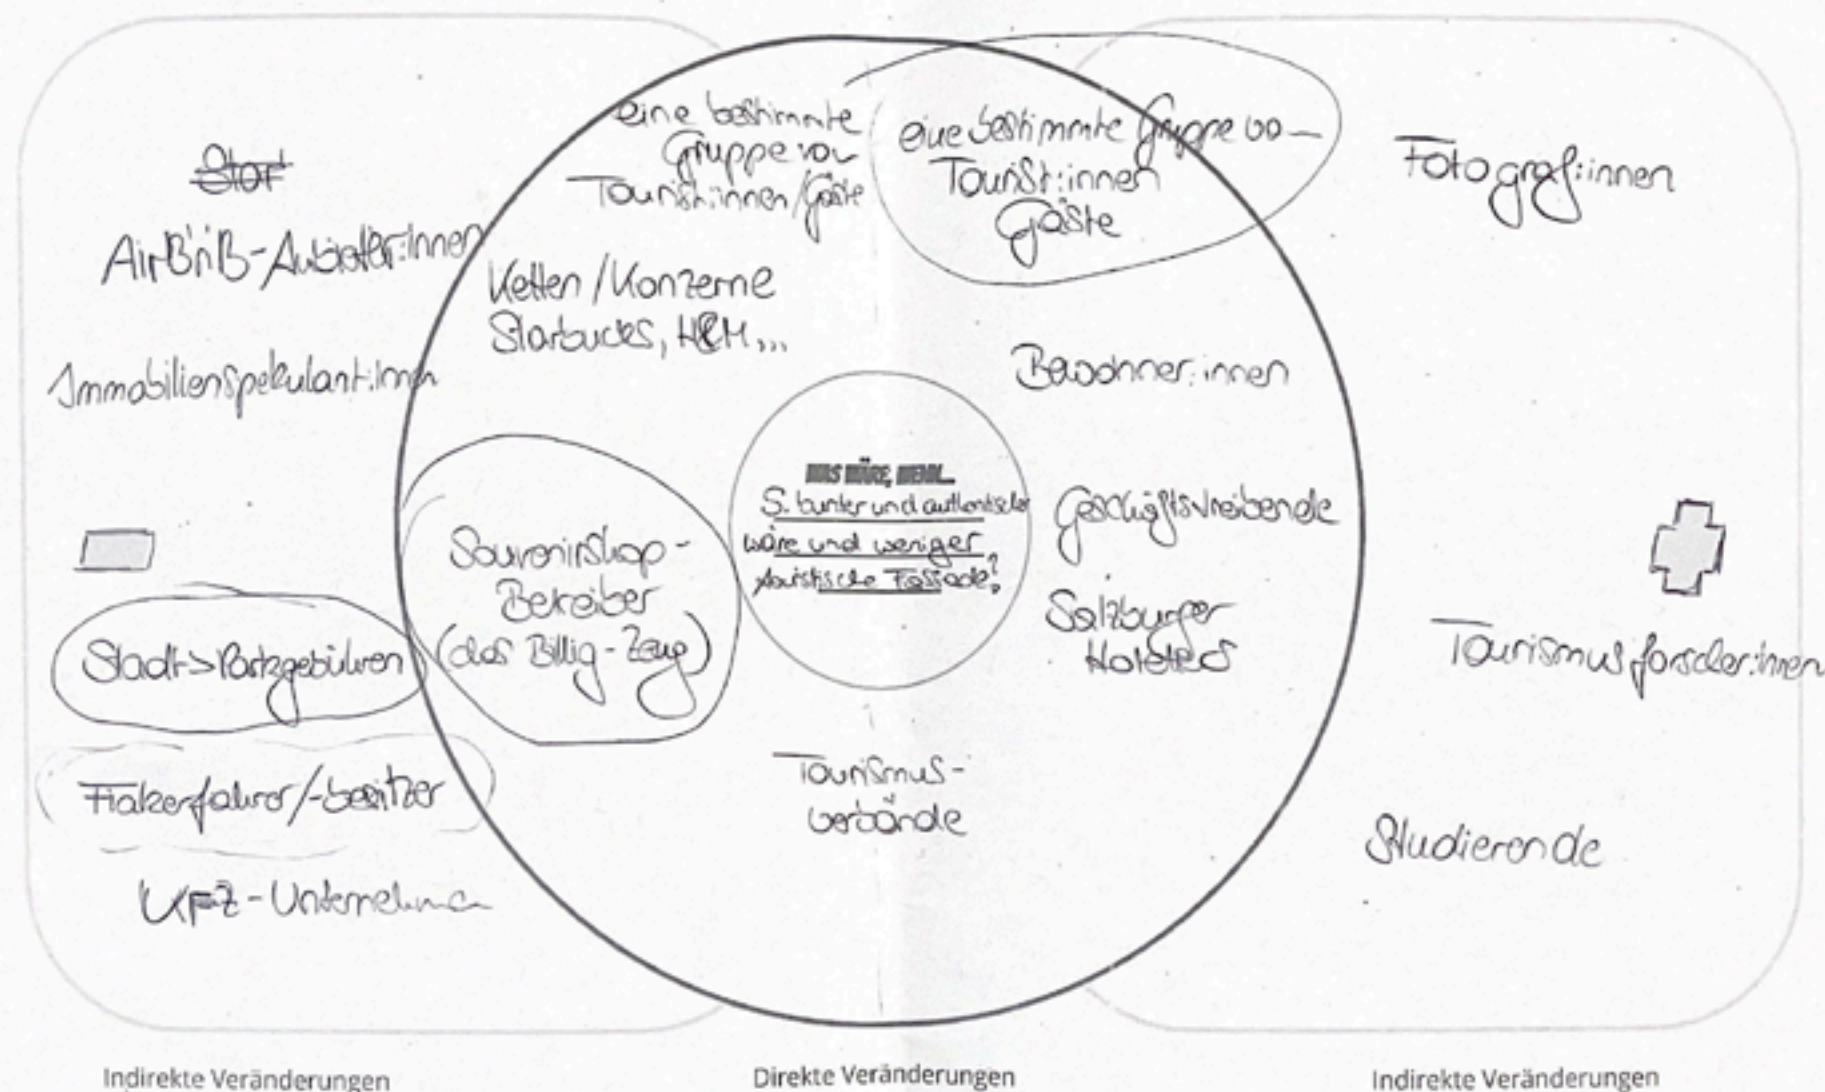 Stor
AirB'n'B-Anbieter:innen
Immobilienspekulant:innen
Stadt>Parkgebühren
Fiakerfahrer/-besitzer
KFZ-Unternehmen
eine bestimmte
Gruppe von
Tourist:innen/Gäste
Ketten/Konzerne
Starbucks, H&M...
Souvenirshop-
Betreiber
(das Billig-Zeug)
WAS WÄRE, WENN...
S. bunter und authentischer
wäre und weniger
touristische Fassade?
Tourismus-
verbände
eine bestimmte Gruppe vo
Tourist:innen
Gäste
Bewohner:innen
Geschäftstreibende
Salzburger
Hoteliers
Fotograf:innen
Tourismusforscher:innen
Studierende
Indirekte Veränderungen
Direkte Veränderungen
Indirekte Veränderungen